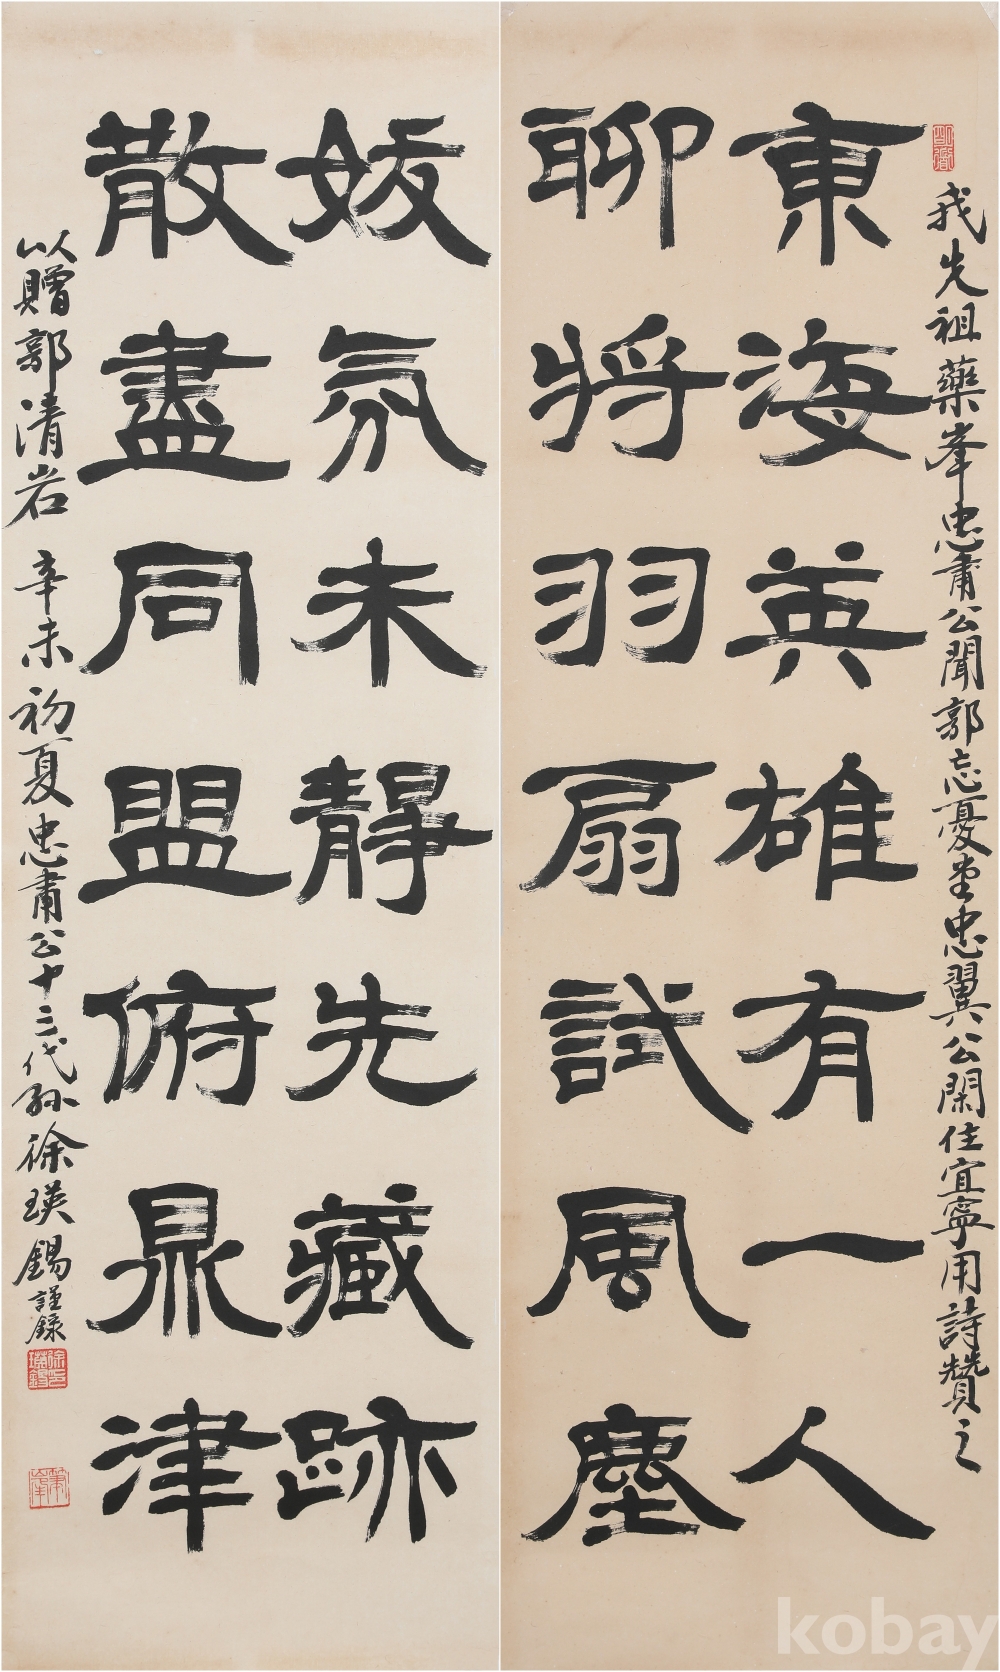 我先祖藥峯忠肅公聞郭忘憂堂忠翼公閑住宜寧用詩贊之
東海英雄有一人
聊將羽扇試風塵
妖氛未靜先藏跡
散盡同盟俯鼎津
以贈郭清岩 辛未初夏忠肅公十三代孫徐瑛錫謹錄
徐瑛錫印
kobay